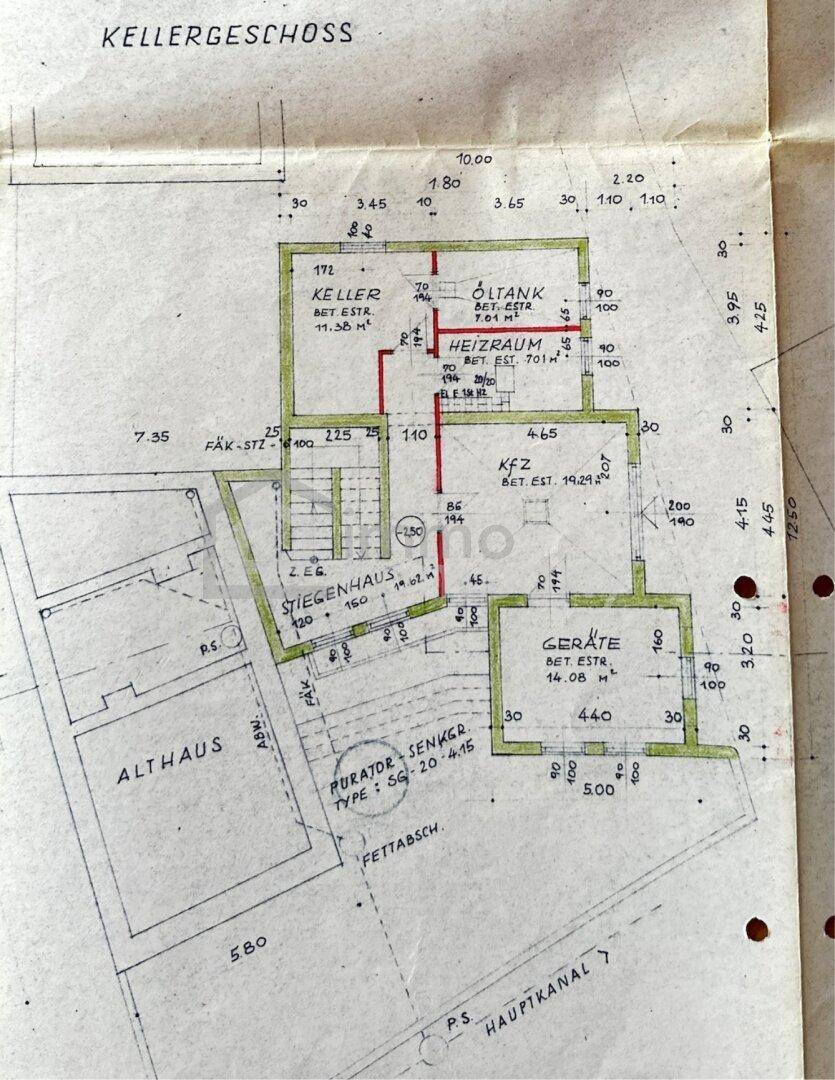 KELLERGESCHOSS
10.00
1.80
2.20
30
3.45
10
3.65
30
1.10
1.10
100
40
172
KELLER
BET. ESTR.
11.38 M²
70
194
ÖLTANK
BET. ESTR.
7.01 M²
65
90
100
30
3.95
4.25
70
194
HEIZRAUM
BET. EST. 701 M²
65
70
194
20/20
90
100
7.35
25
225
25
110
465
30
30
FÄK-STZ-
100
KFZ
BET. EST. 19.29 M²
207
86
194
-2.50
200
190
4.15
4.45
1250
immo
Z. EG.
STIEGENHAUS
19.62 M²
120
150
90
100
90
100
45
90
100
70
194
30
P.S.
GERÄTE
BET. ESTR.
14.08 M²
160
90
100
3.20
FÄK
ABW.
30
440
30
30
ALTHAUS
PURATOR-SENKGR.
TYPE: SG-20-4.15
90
100
90
100
5.00
FETTABSCH.
5.80
P.S.
HAUPTKANAL